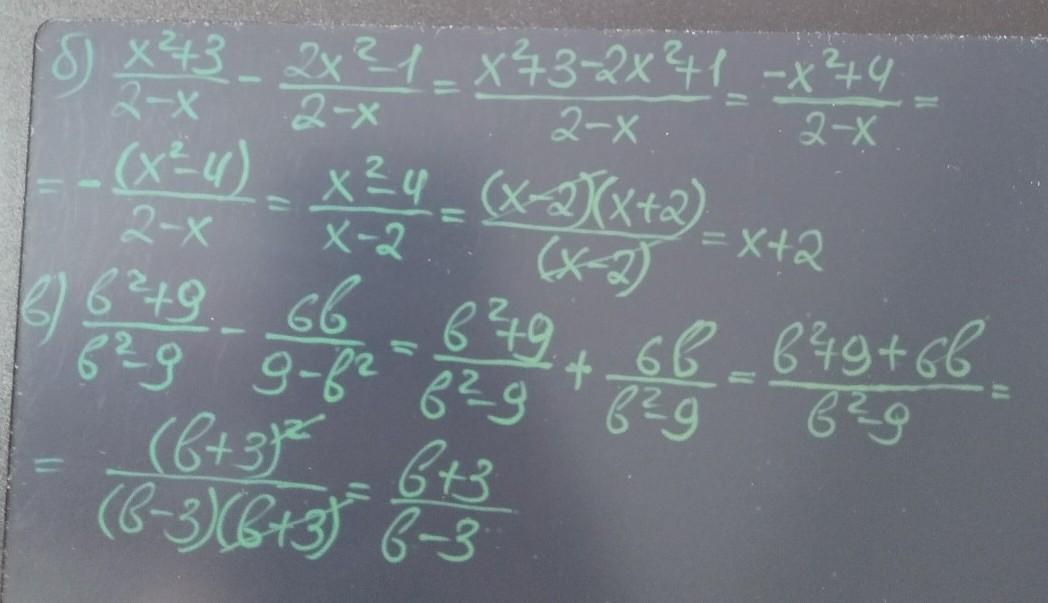 б) (x²+3)/(2-x) - (2x²-1)/(2-x) = (x²+3-2x²+1)/(2-x) = (-x²+4)/(2-x) =
= - (x²-4)/(2-x) = (x²-4)/(x-2) = ((x-2)(x+2))/((x-2)) = x+2
в) (b²+9)/(b²-9) - 6b/(9-b²) = (b²+9)/(b²-9) + 6b/(b²-9) = (b²+9+6b)/(b²-9) =
= (b+3)²/((b-3)(b+3)) = (b+3)/(b-3)